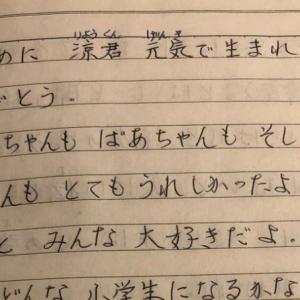 めに 涼君(りょうくん) 元気(げんき)で生まれ
がとう.
ちゃんも ばあちゃんも そし
んも とてもうれしかったよ
と みんな 大好きだよ.
どんな 小学生になるかな